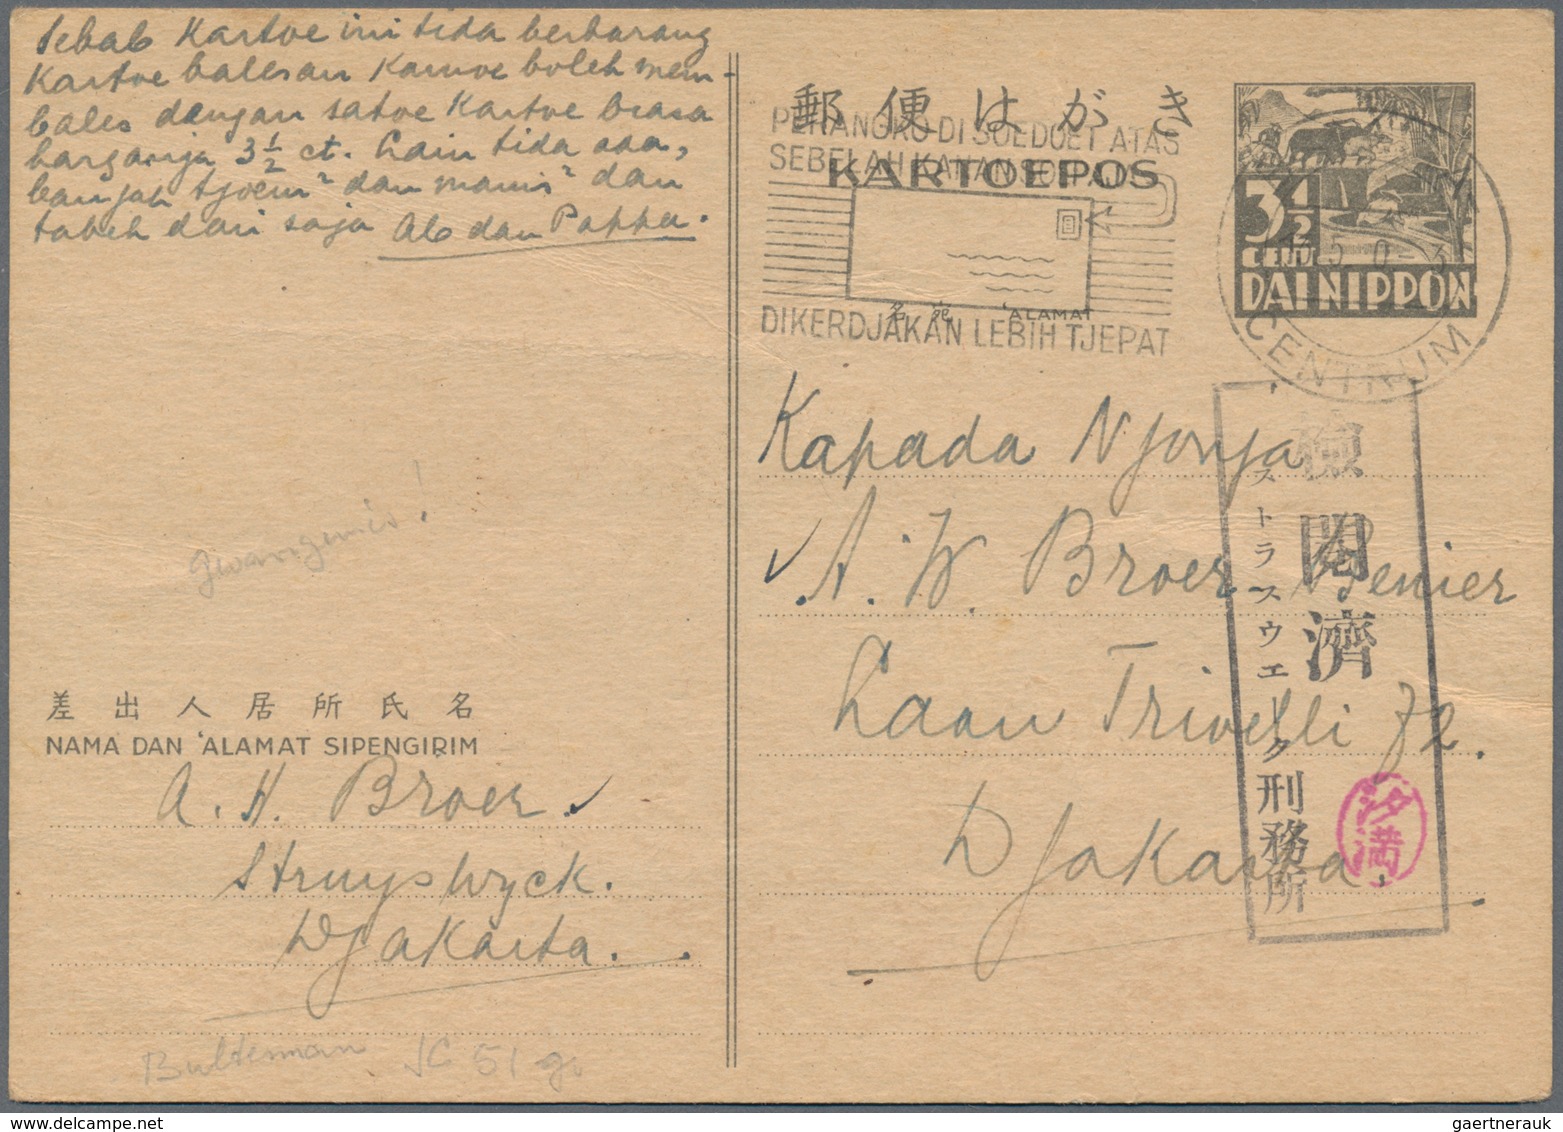 Sebab Kartoe ini tida berbarang
Kartoe balesan Kamoe boleh mem-
bales dengan satoe Kartoe biasa
harganja 3½ ct. Lain tida ada,
banjak tjoem² dan manis² dan
tabeh dari saja Ab dan Pappa.
郵便はがき
PERANGKO DI SOEDOET ATAS
SEBELAH KANAN SOERAT
KARTOEPOS
名宛 'ALAMAT
DIKERDJAKAN LEBIH TJEPAT
3½
CENT
DAI NIPPON
5 0-3
CENTRUM
Kapada Njonja
A. W. Broer Penier
Laan Trivelli 72.
Djakarta
検閲済
ストラスウエーク刑務所
汐満
差出人居所氏名
NAMA DAN 'ALAMAT SIPENGIRIM
A. H. Broer
Struyswyck.
Djakarta.
Bulterman JC 51
gaertnerauk